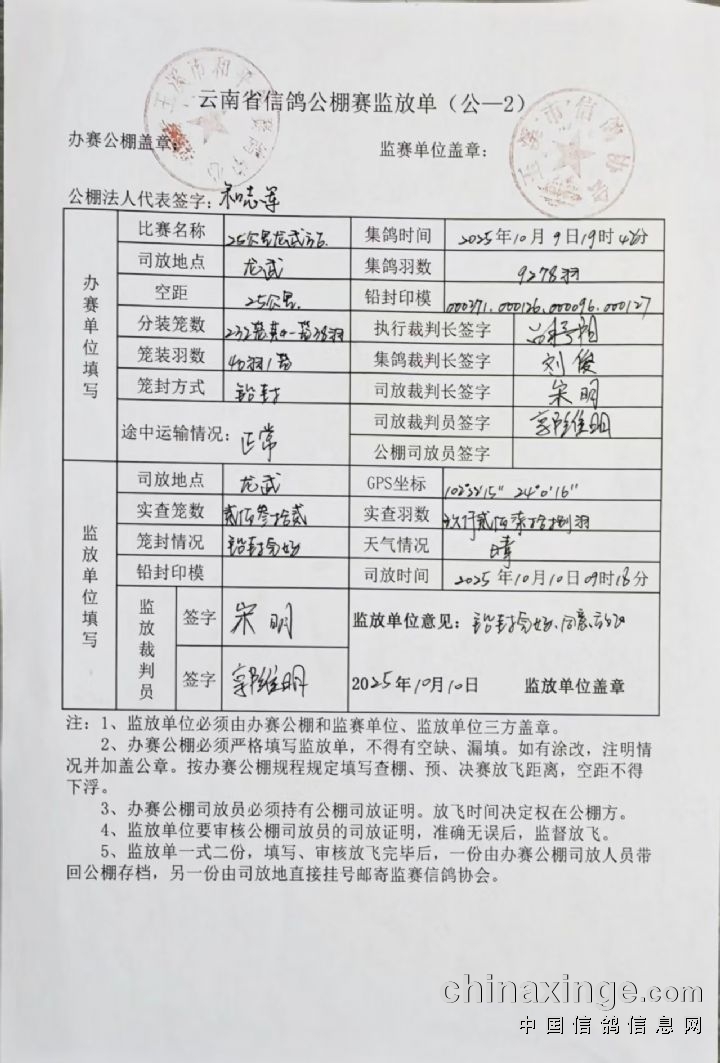 云南省信鸽公棚赛监放单（公—2）
办赛公棚盖章：
监赛单位盖章：
玉溪市信鸽协会
公棚法人代表签字：
办赛单位填写
比赛名称 25公里龙武
集鸽时间 2025年10月9日19时4 分
司放地点 龙武
集鸽羽数 9278羽
空距 25公里
铅封印模 000371.000126.000096.000127
分装笼数 232笼其中一笼38羽
执行裁判长签字
笼装羽数 40羽/笼
集鸽裁判长签字 刘俊
笼封方式 铅封
司放裁判长签字 宋明
途中运输情况：正常
司放裁判员签字 郭维明
公棚司放员签字
监放单位填写
司放地点 龙武
GPS坐标 102°32′15″ 24°0′16″
实查笼数 贰佰叁拾贰
实查羽数 玖仟贰佰柒拾捌羽
笼封情况 铅封完好
天气情况 晴
铅封印模
司放时间 2025年10月10日09时18分
监放裁判员
签字 宋明
签字 郭维明
监放单位意见：铅封完好、同意
2025年10月10日 监放单位盖章
注：1、监放单位必须由办赛公棚和监赛单位、监放单位三方盖章。
2、办赛公棚必须严格填写监放单，不得有空缺、漏填。如有涂改，注明情
况并加盖公章。按办赛公棚规程规定填写查棚、预、决赛放飞距离，空距不得
下浮。
3、办赛公棚司放员必须持有公棚司放证明。放飞时间决定权在公棚方。
4、监放单位要审核公棚司放员的司放证明，准确无误后，监督放飞。
5、监放单一式二份，填写、审核放飞完毕后，一份由办赛公棚司放人员带
回公棚存档，另一份由司放地直接挂号邮寄监赛信鸽协会。
chinaxinge.com
中国信鸽信息网